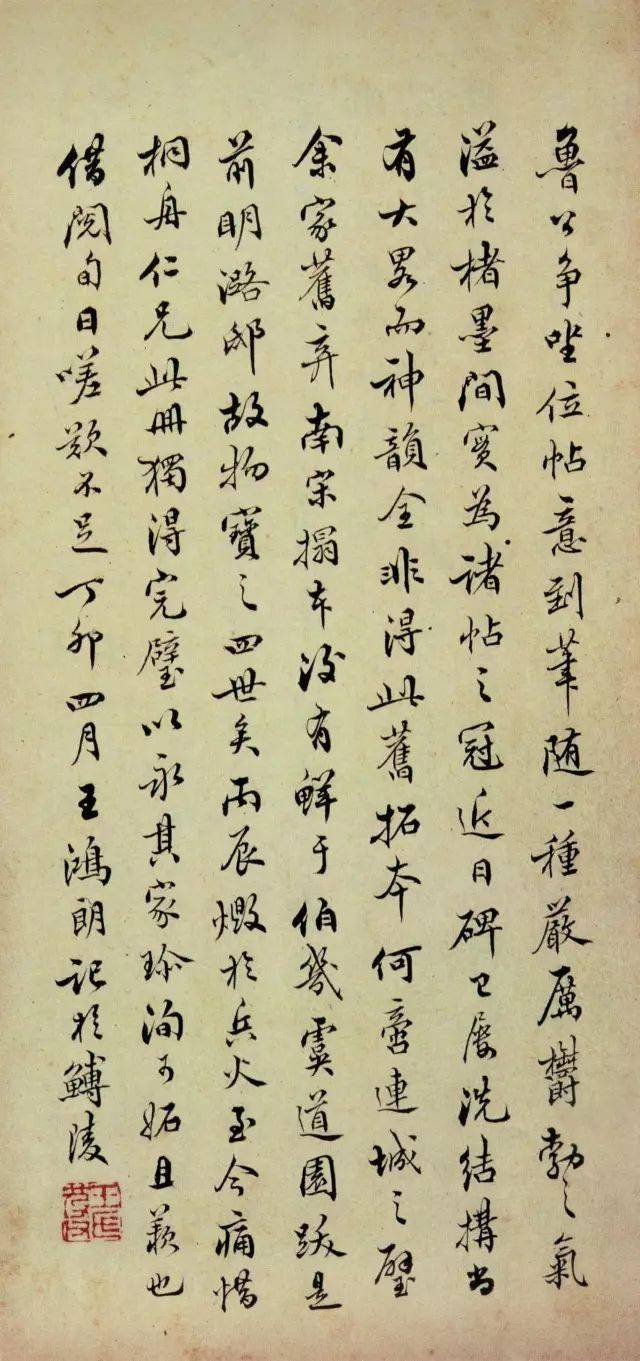 魯公争坐位帖意到筆随一種嚴厲欝勃之氣
溢於楮墨間實為諸帖之冠近日碑已屡洗結搆尚
有大畧而神韻全非得此舊拓本何啻連城之璧
余家舊弆南宋搨本後有鮮于伯幾虞道園跋是
前明潞邸故物寶之四世矣丙辰燬於兵火至今痛惜
桐舟仁兄此冊獨得完璧以永其家珎洵可妬且羨也
借閲旬日嗟歎不足丁卯四月王鴻朗記於鱄陵